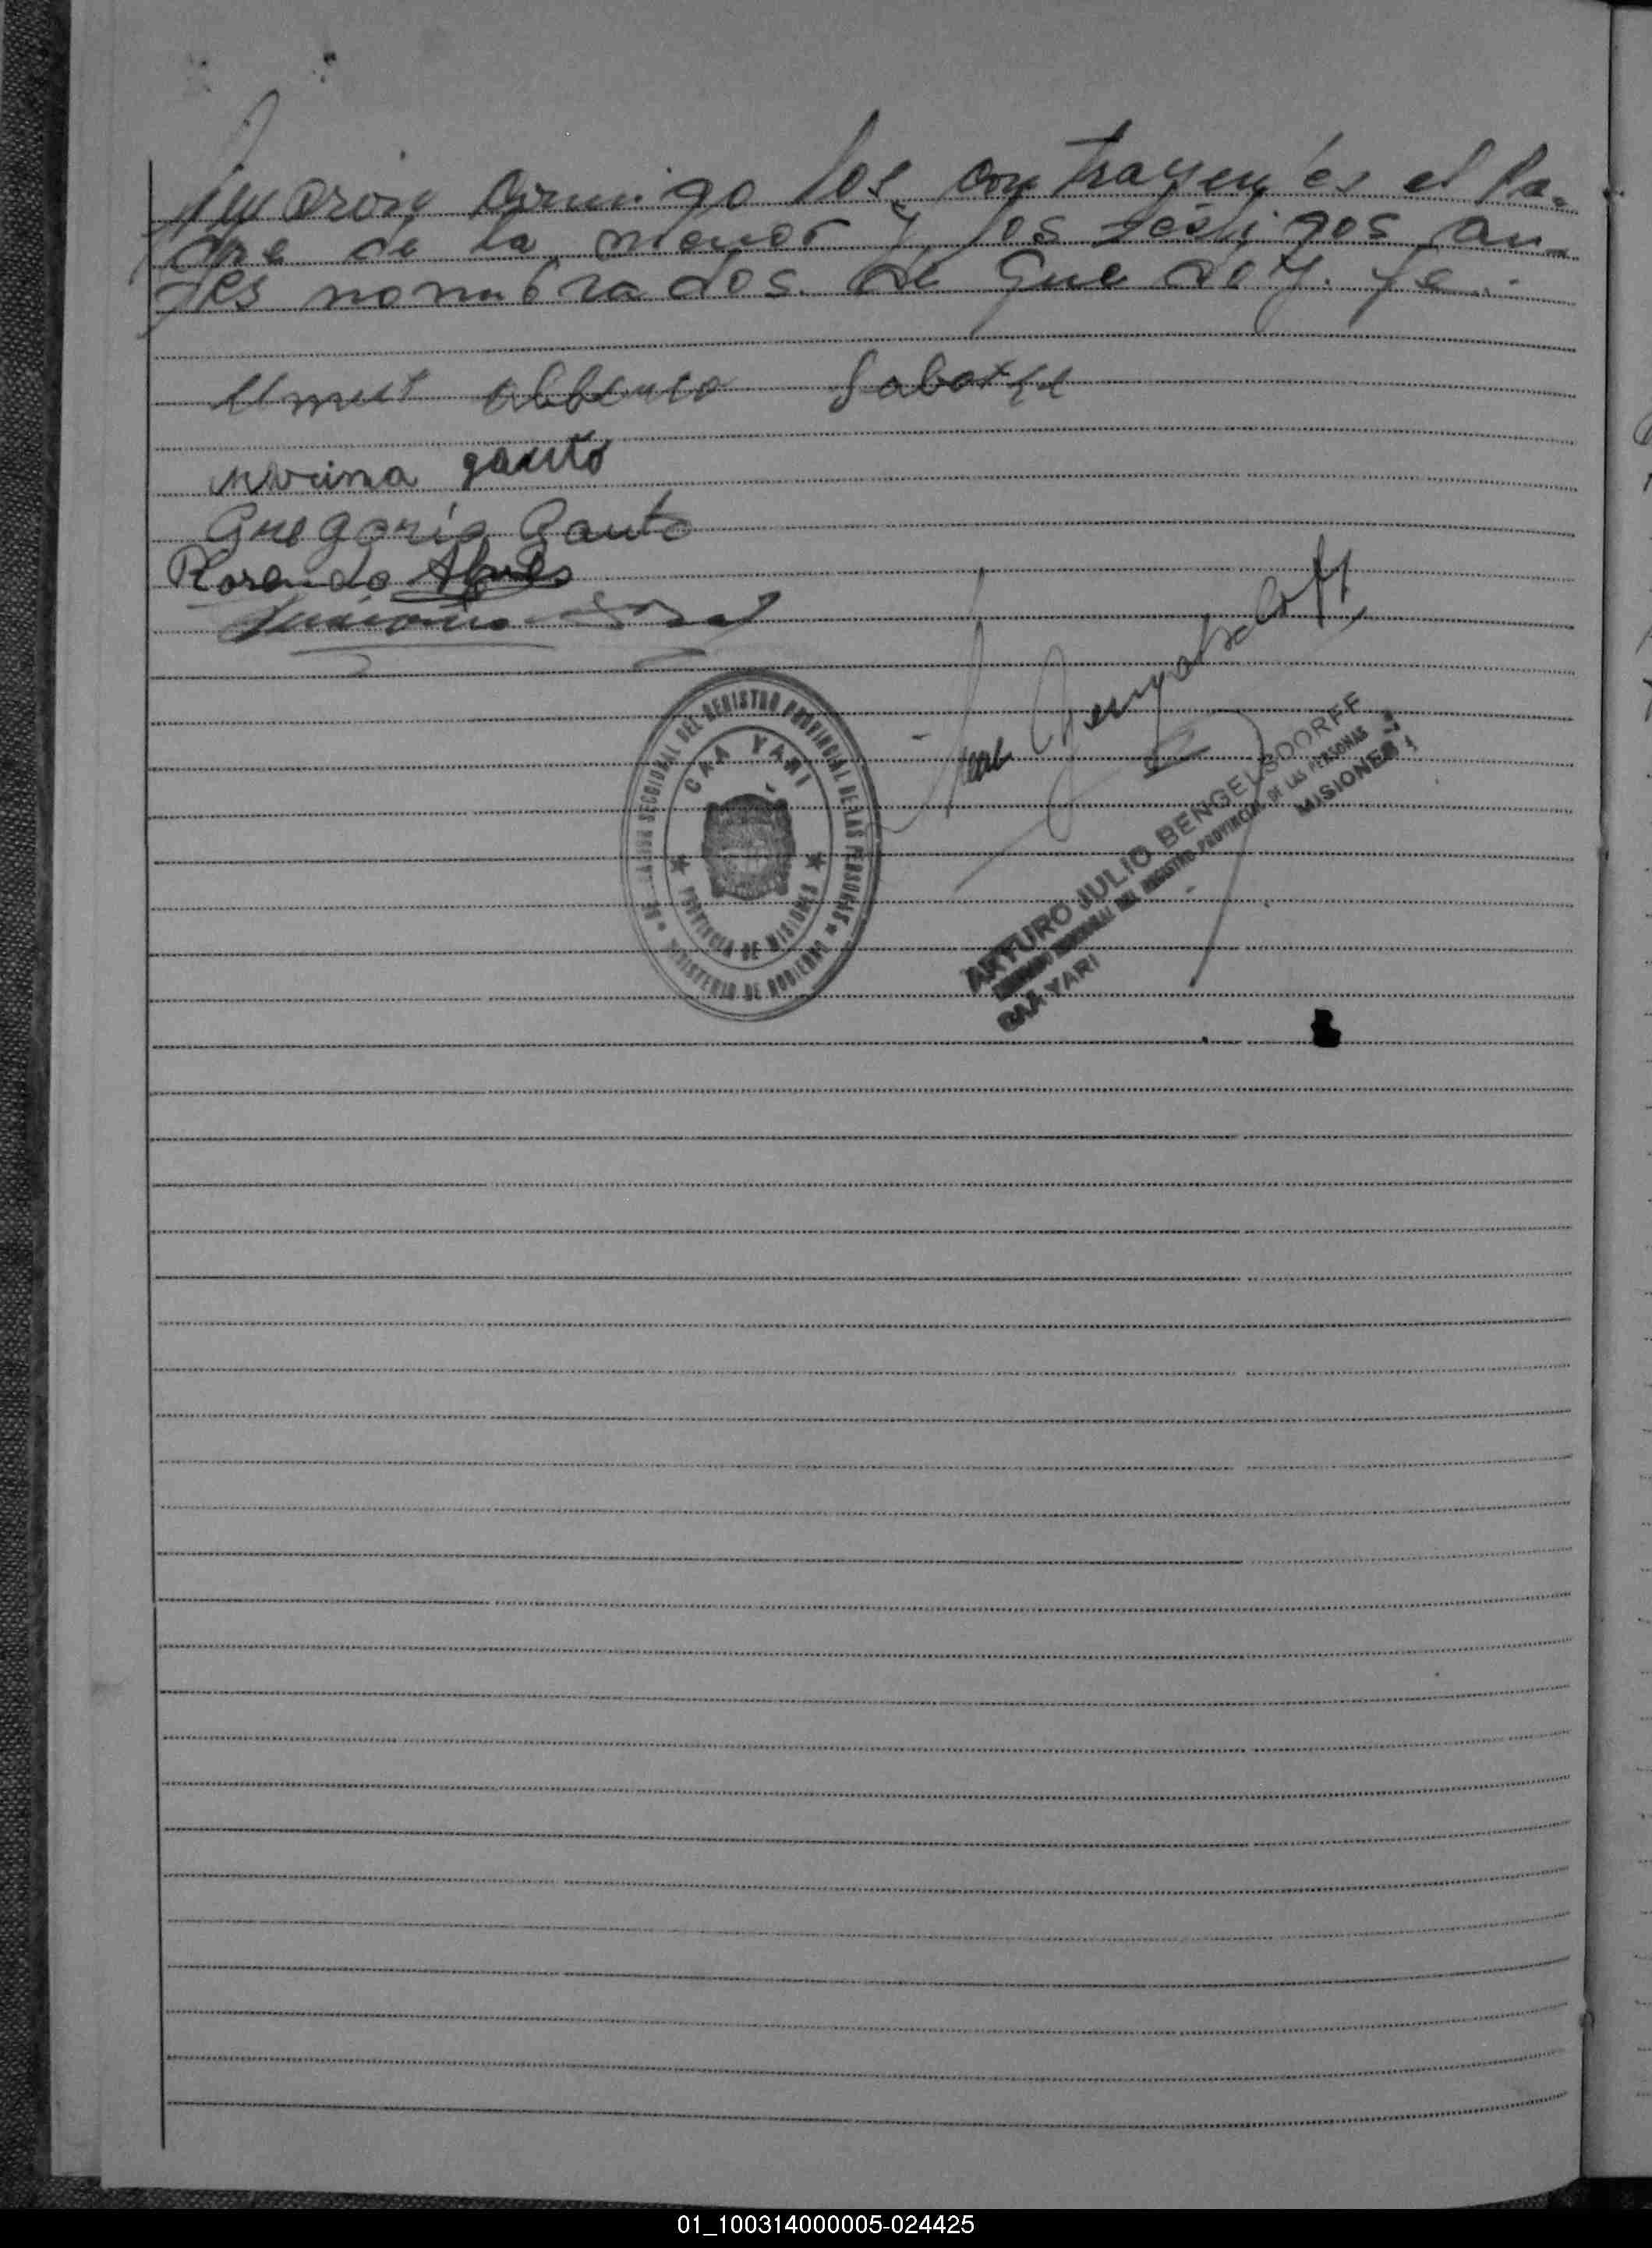 firmaron conmigo los contrayentes el Pa-
dre de la menor y los testigos an-
tes nombrados. de que doy. fe..-
alberto
Marina gauto
Gregorio Gauto
Rosendo Alves
ARTURO JULIO BENGELSDORFF
SECCIONAL DEL REGISTRO PROVINCIAL DE LAS PERSONAS
CAA YARI MISIONES
SECCIONAL DEL REGISTRO PROVINCIAL DE LAS PERSONAS
CAA YARI
PROVINCIA DE MISIONES
MINISTERIO DE GOBIERNO
01_100314000005-024425